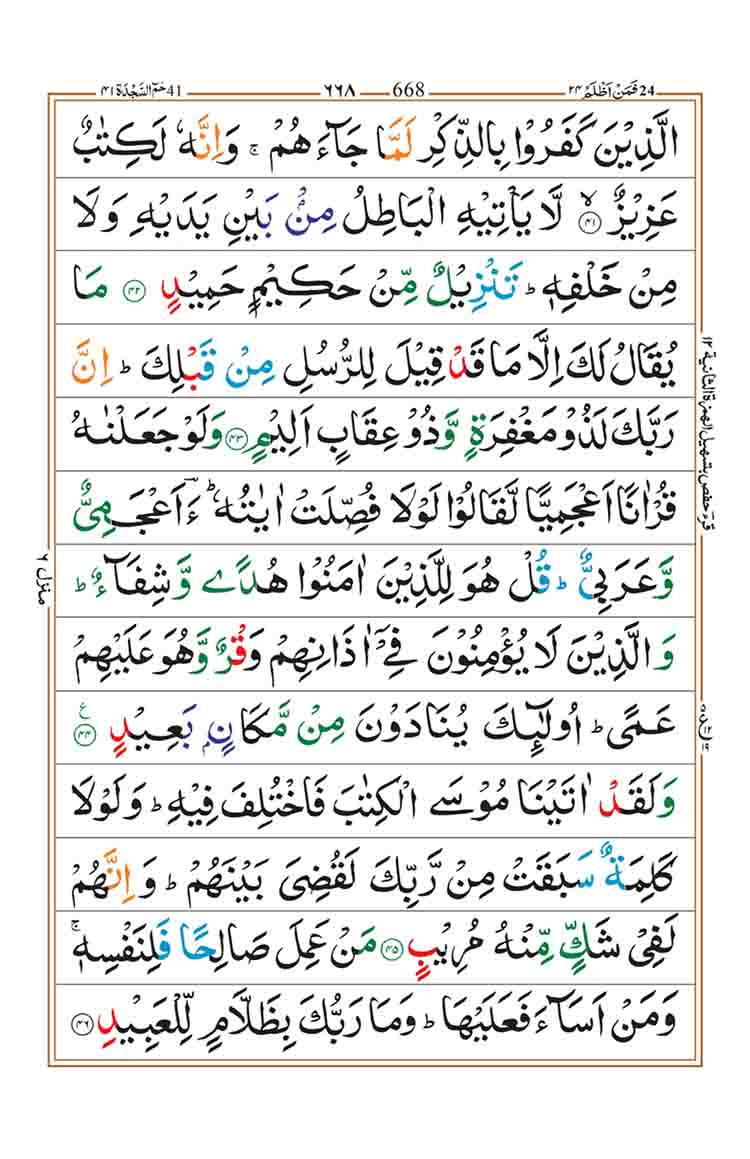 24 فَمَنْ اَظْلَمُ ٢٤ 668 ٦٦٨ 41 حٰمٓ السَّجْدَة ٤١
الَّذِيْنَ كَفَرُوْا بِالذِّكْرِ لَمَّا جَآءَهُمْ ۚ وَاِنَّهٗ لَكِتٰبٌ
عَزِيْزٌ ۙ ﴿٤١﴾ لَّا يَاْتِيْهِ الْبَاطِلُ مِنْۢ بَيْنِ يَدَيْهِ وَلَا
مِنْ خَلْفِهٖ ؕ تَنْزِيْلٌ مِّنْ حَكِيْمٍ حَمِيْدٍ ﴿٤٢﴾ مَا
يُقَالُ لَكَ اِلَّا مَا قَدْ قِيْلَ لِلرُّسُلِ مِنْ قَبْلِكَ ؕ اِنَّ
رَبَّكَ لَذُوْ مَغْفِرَةٍ وَّذُوْ عِقَابٍ اَلِيْمٍ ﴿٤٣﴾ وَلَوْ جَعَلْنٰهُ
قُرْاٰنًا اَعْجَمِيًّا لَّقَالُوْا لَوْلَا فُصِّلَتْ اٰيٰتُهٗ ؕ ءَاَعْجَمِيٌّ
وَّعَرَبِيٌّ ؕ قُلْ هُوَ لِلَّذِيْنَ اٰمَنُوْا هُدًى وَّشِفَآءٌ ؕ
وَالَّذِيْنَ لَا يُؤْمِنُوْنَ فِيْۤ اٰذَانِهِمْ وَقْرٌ وَّهُوَ عَلَيْهِمْ
عَمًى ؕ اُولٰٓئِكَ يُنَادَوْنَ مِنْ مَّكَانٍۭ بَعِيْدٍ ﴿٤٤﴾ ع
وَلَقَدْ اٰتَيْنَا مُوْسَى الْكِتٰبَ فَاخْتُلِفَ فِيْهِ ؕ وَلَوْلَا
كَلِمَةٌ سَبَقَتْ مِنْ رَّبِّكَ لَقُضِيَ بَيْنَهُمْ ؕ وَاِنَّهُمْ
لَفِيْ شَكٍّ مِّنْهُ مُرِيْبٍ ﴿٤٥﴾ مَنْ عَمِلَ صَالِحًا فَلِنَفْسِهٖ ۚ
وَمَنْ اَسَآءَ فَعَلَيْهَا ؕ وَمَا رَبُّكَ بِظَلَّامٍ لِّلْعَبِيْدِ ﴿٤٦﴾
قرء حفص بتسهيل الهمزة الثانية ١٢
منزل ٦